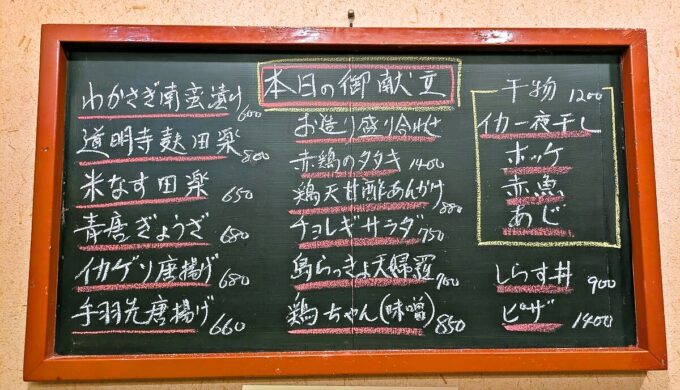 わかさぎ南蛮漬け 600
道明寺麸田楽 800
米なす田楽 650
青唐ぎょうざ 680
イカゲソ唐揚げ 680
手羽先唐揚げ 660
本日の御献立
お造り盛り合わせ
赤鶏のタタキ 1400
鶏天甘酢あんかけ 880
チョレギサラダ 750
島らっきょ天婦羅 700
鶏ちゃん(味噌) 850
干物 1200
イカ一夜干し
ホッケ
赤魚
あじ
しらす丼 900
ピザ 1400